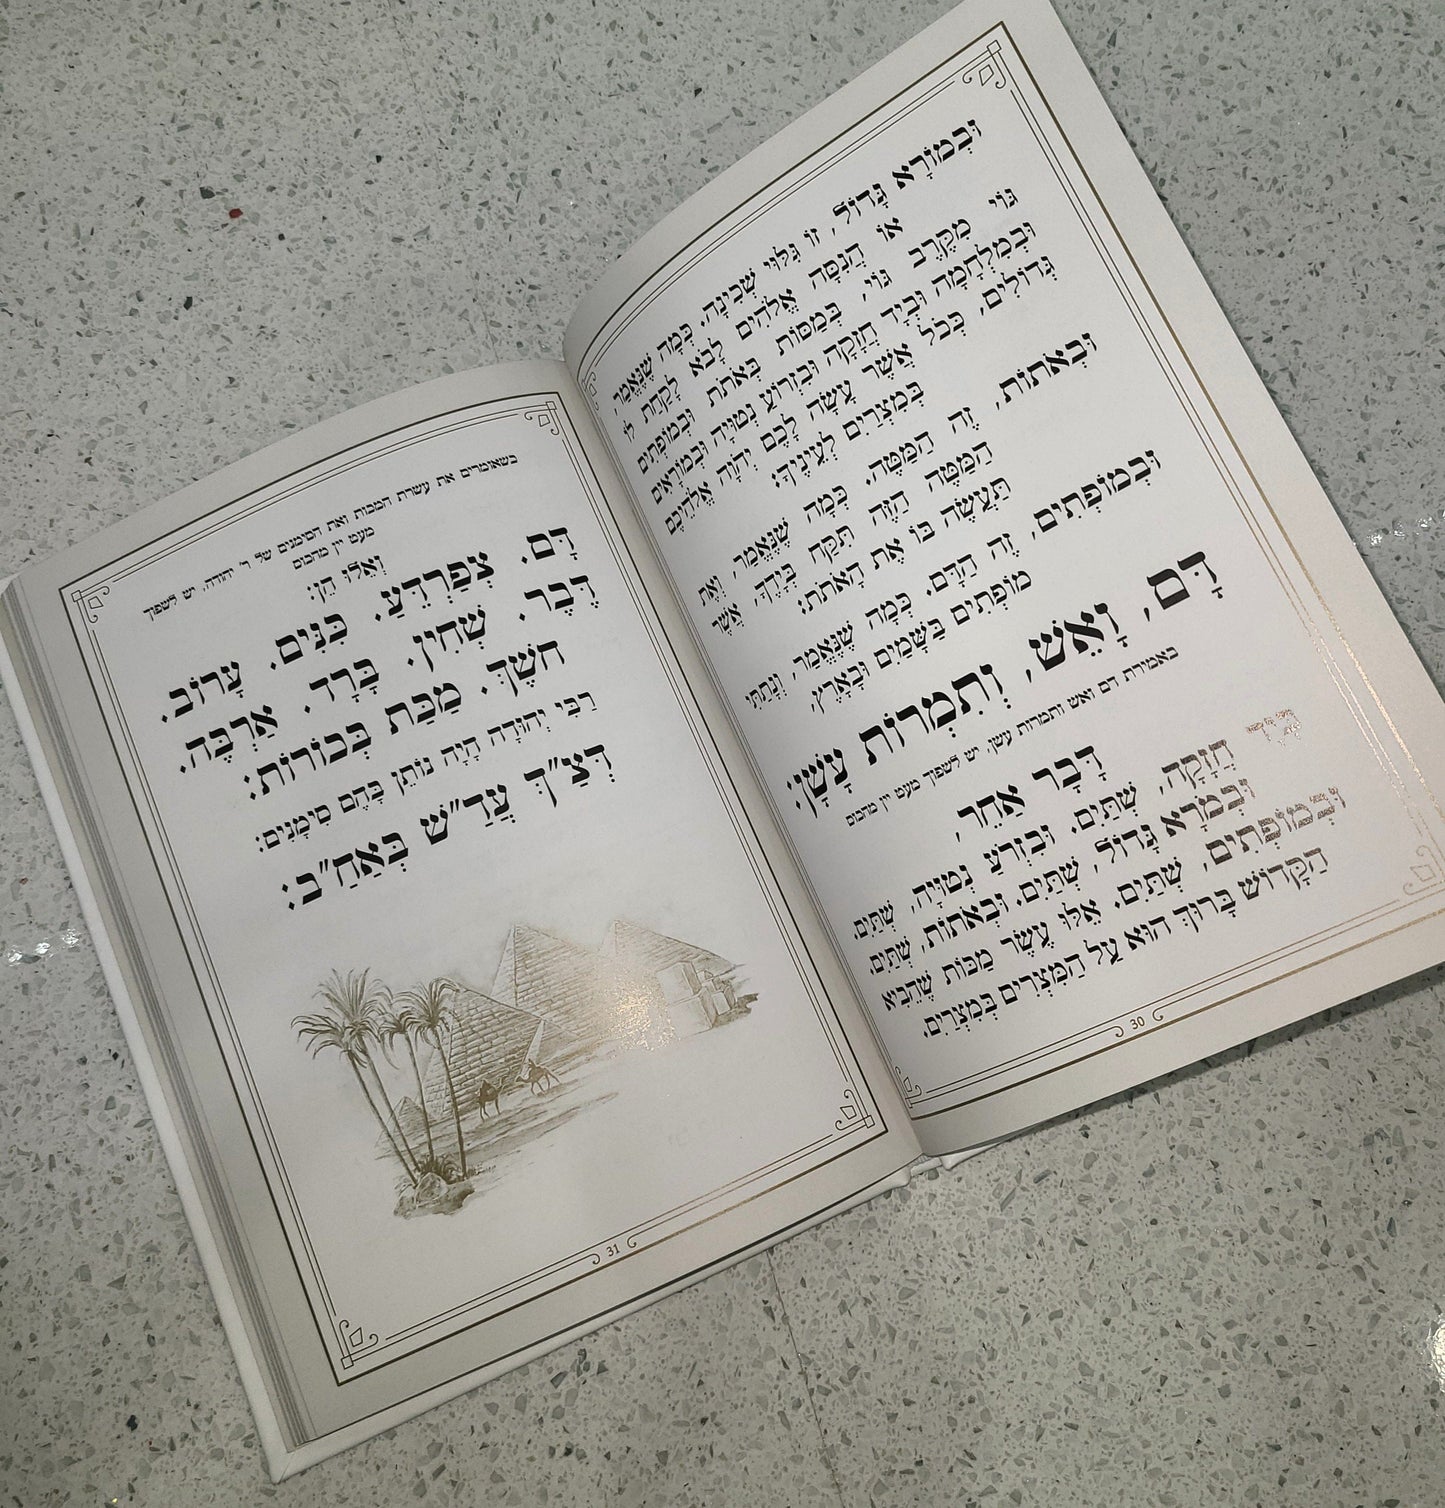 וּבְמוֹרָא גָּדוֹל, זוֹ גִּלּוּי שְׁכִינָה. כְּמָה שֶׁנֶּאֱמַר,
אוֹ הֲנִסָּה אֱלֹהִים לָבֹא לָקַחַת לוֹ
גּוֹי מִקֶּרֶב גּוֹי, בְּמַסּוֹת בְּאֹתֹת וּבְמוֹפְתִים
וּבְמִלְחָמָה וּבְיָד חֲזָקָה וּבִזְרוֹעַ נְטוּיָה וּבְמוֹרָאִים
גְּדוֹלִים, כְּכֹל אֲשֶׁר עָשָׂה לָכֶם יְהֹוָה אֱלֹהֵיכֶם
בְּמִצְרַיִם לְעֵינֶיךָ:
וּבְאֹתוֹת, זֶה הַמַּטֶּה. כְּמָה שֶׁנֶּאֱמַר, וְאֶת
הַמַּטֶּה הַזֶּה תִּקַּח בְּיָדֶךָ, אֲשֶׁר
תַּעֲשֶׂה בּוֹ אֶת הָאֹתֹת:
וּבְמוֹפְתִים, זֶה הַדָּם. כְּמָה שֶׁנֶּאֱמַר, וְנָתַתִּי
מוֹפְתִים בַּשָּׁמַיִם וּבָאָרֶץ,
דָּם, וָאֵשׁ, וְתִמְרוֹת עָשָׁן:
באמירת דם ואש ותמרות עשן, יש לשפוך מעט יין מהכוס
דָּבָר אַחֵר,
בְּיָד חֲזָקָה, שְׁתַּיִם. וּבִזְרֹעַ נְטוּיָה, שְׁתַּיִם.
וּבְמֹרָא גָּדוֹל, שְׁתַּיִם. וּבְאֹתוֹת, שְׁתַּיִם.
וּבְמוֹפְתִים, שְׁתַּיִם. אֵלּוּ עֶשֶׂר מַכּוֹת שֶׁהֵבִיא
הַקָּדוֹשׁ בָּרוּךְ הוּא עַל הַמִּצְרִים בְּמִצְרַיִם.
30
כשאומרים את עשרת המכות ואת הסימנים של ר' יהודה, יש לשפוך
מעט יין מהכוס
וְאֵלּוּ הֵן:
דָּם. צְפַרְדֵּעַ. כִּנִּים. עָרוֹב.
דֶּבֶר. שְׁחִין. בָּרָד. אַרְבֶּה.
חֹשֶׁךְ. מַכַּת בְּכוֹרוֹת:
רַבִּי יְהוּדָה הָיָה נוֹתֵן בָּהֶם סִימָנִים:
דְּצַ״ךְ עֲדַ״שׁ בְּאַחַ״ב:
31